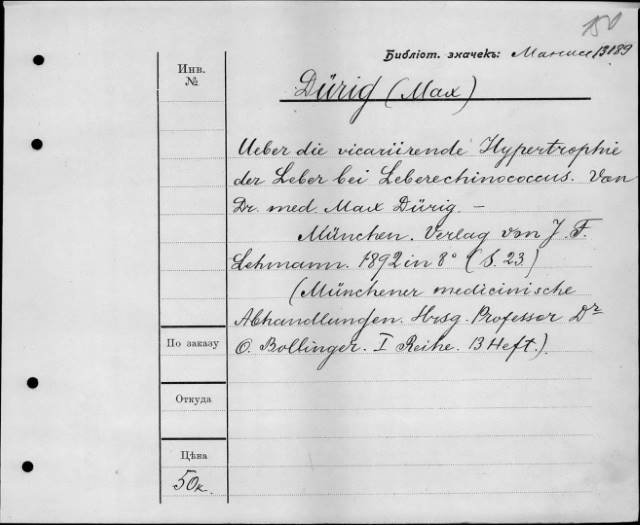 150
Библіот. значекъ: 13189
Инв.
№
Dürig (Max)
Ueber die vicariirende Hypertrophie
der Leber bei Leberechinococcus. Von
Dr. med. Max Dürig. —
München. Verlag von J. F.
Lehmann. 1892 in 8° (S. 23.)
(Münchener medicinische
Abhandlungen. Hrsg. Professor Dr
O. Bollinger. I Reihe. 13 Heft.).
По заказу
Откуда
Цѣна
50к.